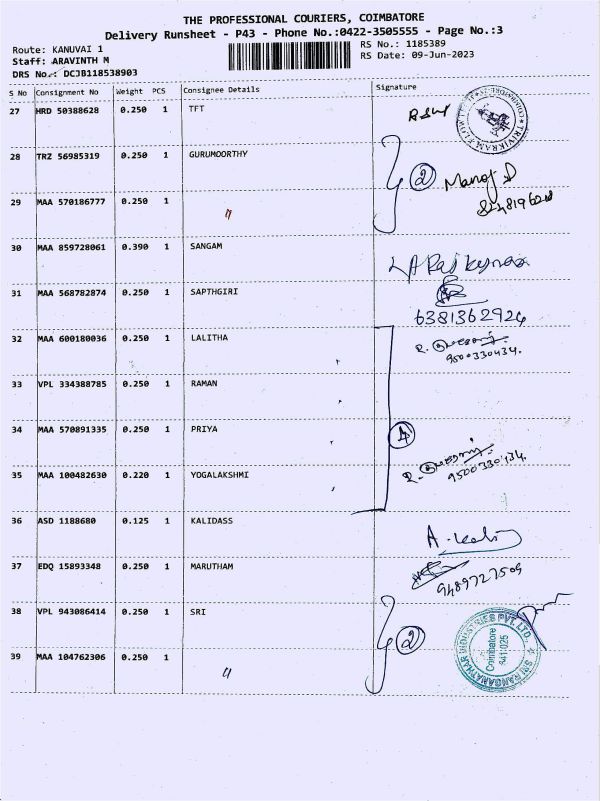 THE PROFESSIONAL COURIERS, COIMBATORE
Delivery Runsheet - P43 - Phone No.:0422-3505555 - Page No.:3
Route: KANUVAI 1
RS No.: 1185389
Staff: ARAVINTH M
RS Date: 09-Jun-2023
DRS No.: DCJB118538903
S No Consignment No Weight PCS Consignee Details Signature
27 HRD 50388628 0.250 1 TFT
28 TRZ 56985319 0.250 1 GURUMOORTHY
2 Manoj D
29 MAA 570186777 0.250 1 "
30 MAA 859728061 0.390 1 SANGAM
31 MAA 568782874 0.250 1 SAPTHGIRI
6381362924
32 MAA 600180036 0.250 1 LALITHA
9500330434.
33 VPL 334388785 0.250 1 RAMAN
34 MAA 570891335 0.250 1 PRIYA
4
35 MAA 100482630 0.220 1 YOGALAKSHMI
36 ASD 1188680 0.125 1 KALIDASS
37 EDQ 15893348 0.250 1 MARUTHAM
9489727509
38 VPL 943086414 0.250 1 SRI
2
SRI RANGANATHAR INDUSTRIES PVT. LTD.,
Coimbatore
641 025
39 MAA 104762306 0.250 1 "